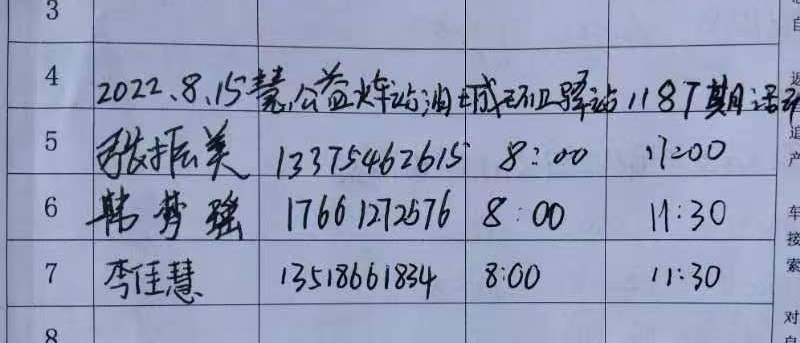 3
4 2022.8.15慧公益火车站油城环卫驿站1187期活动
5 张振美 13375462615 8:00 11:00
6 韩梦瑶 17661272576 8:00 11:30
7 李佳慧 13518661834 8:00 11:30
8
自
追
产
车
接
索
对
自